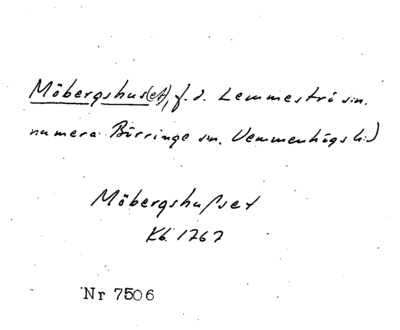 Möbergshus(et), f.d. Lemmeströ sn.
numera Börringe sn. Vemmenhögs hd
Möbergshußet
Kb. 1767
Nr 7506